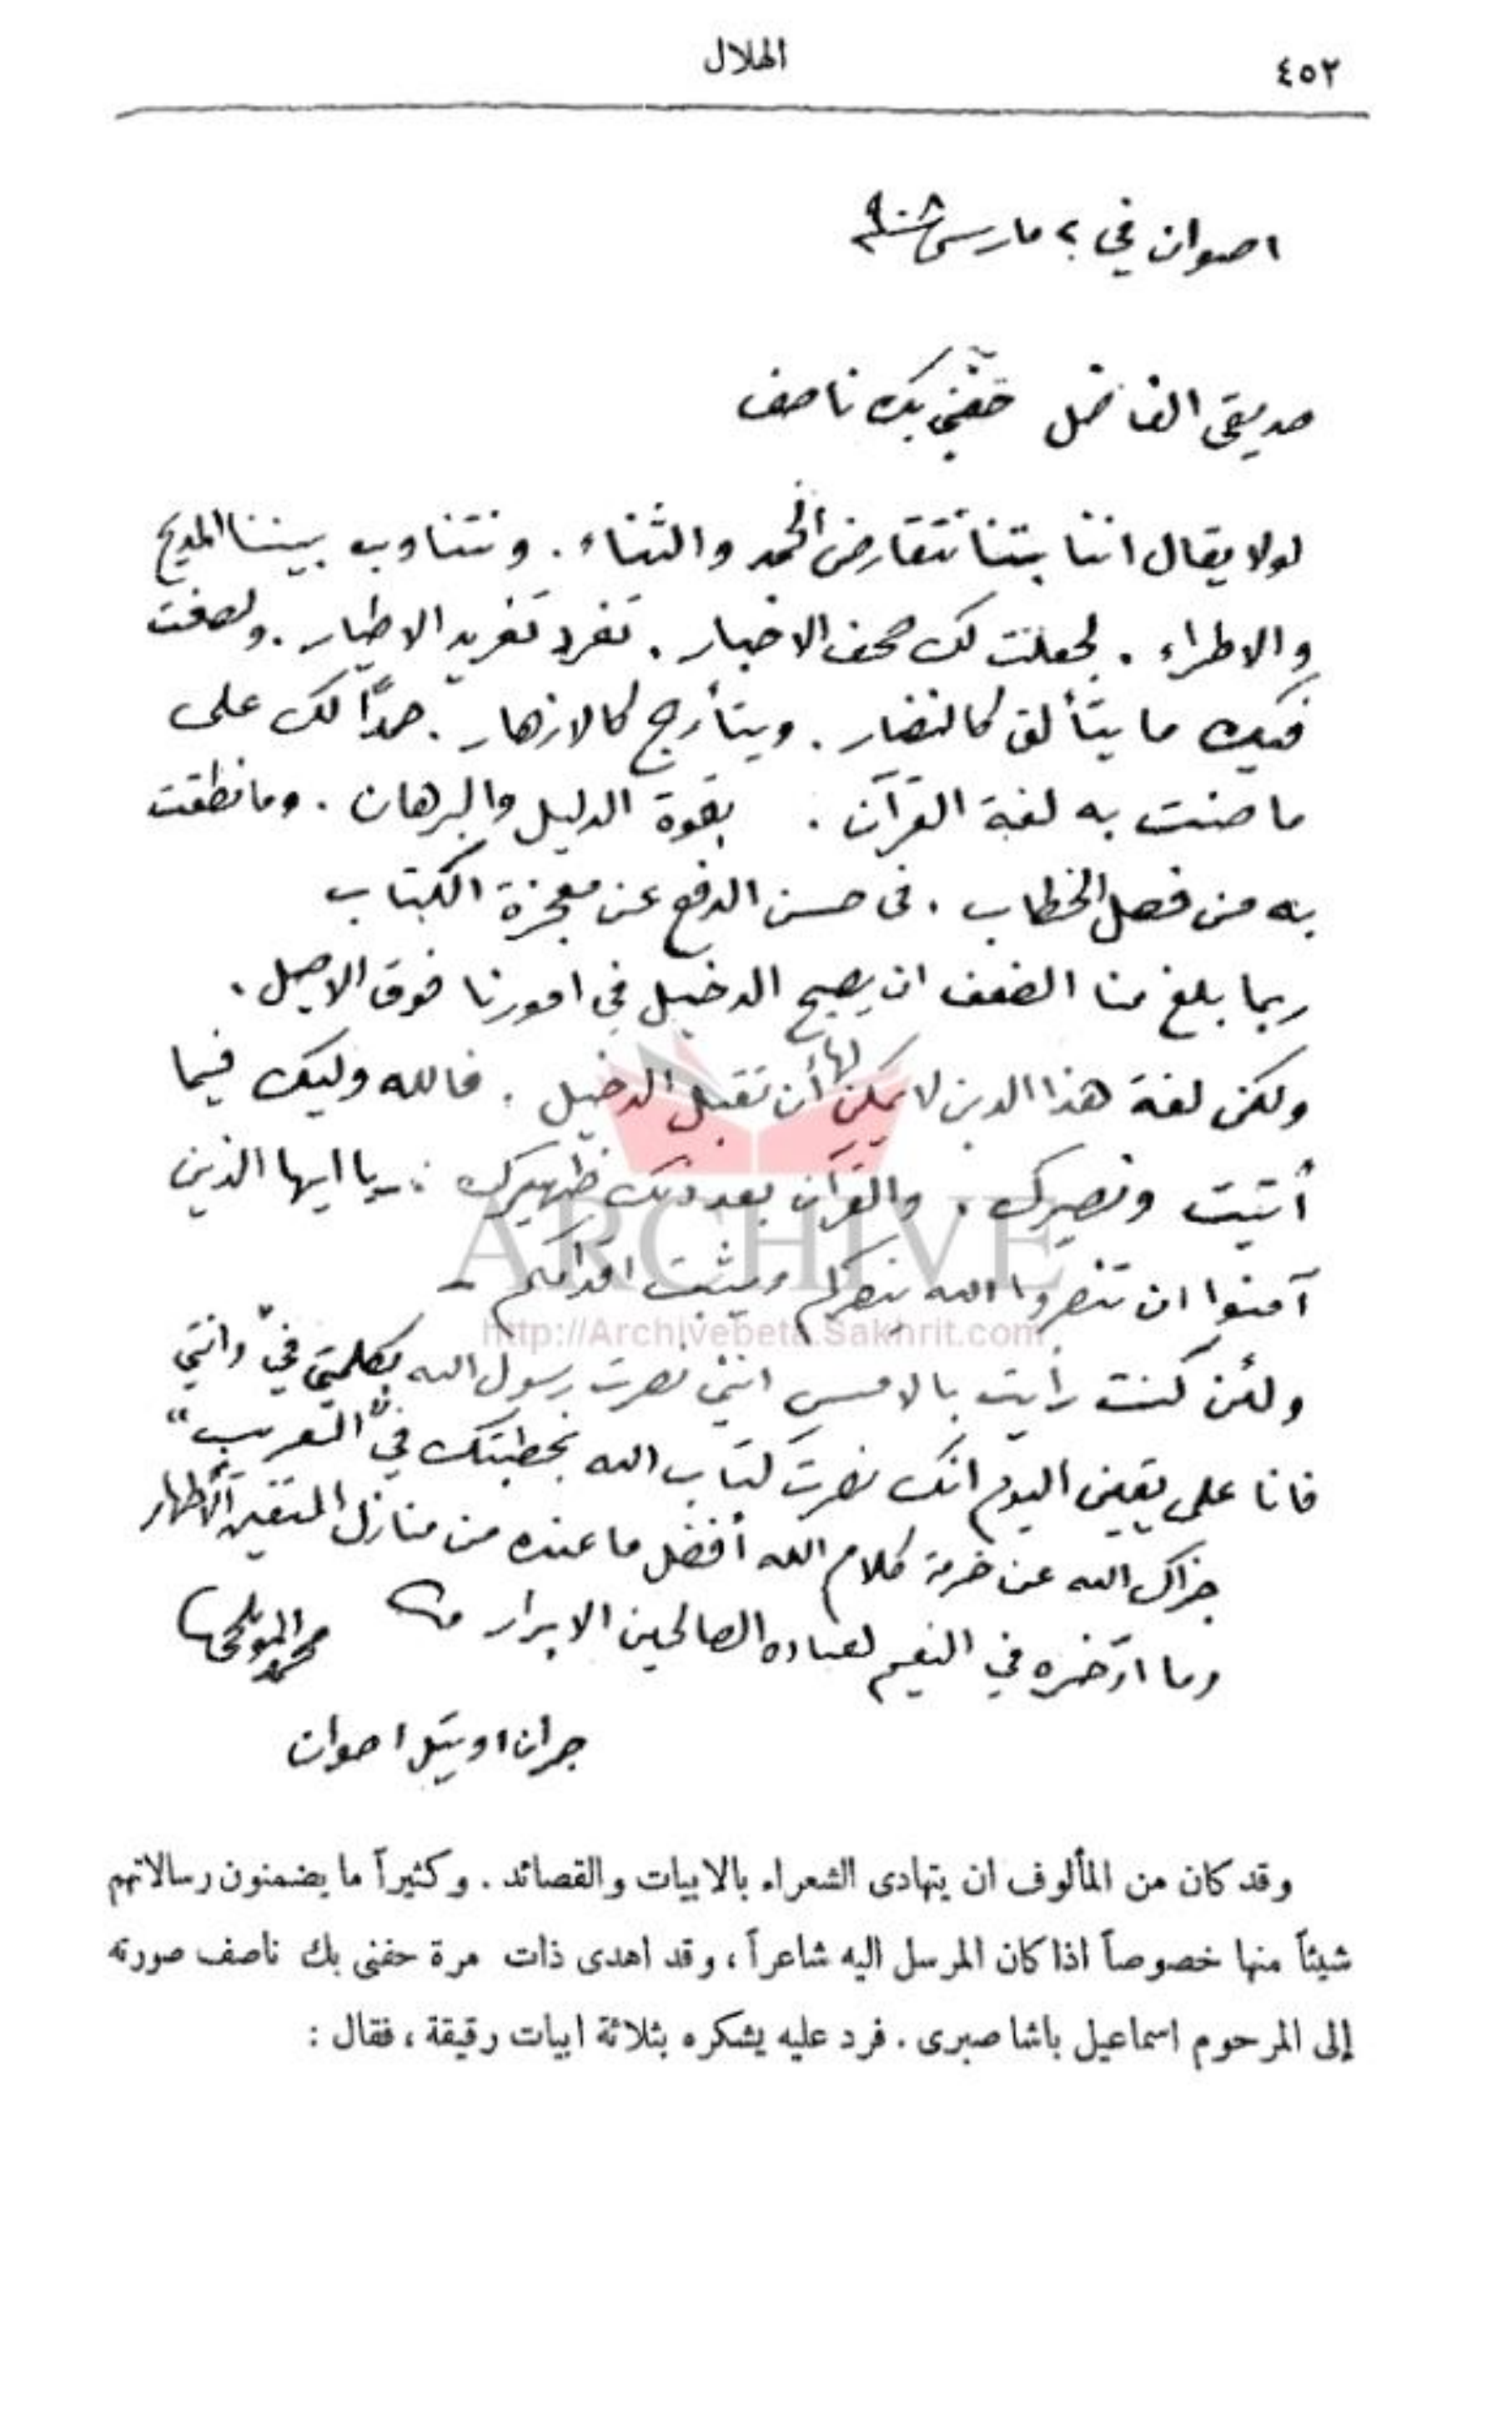 ٤٥٢
الهلال
اصوان في ٢ مارس سنة ٩٠٨
صديقى الفاضل حفني بك ناصف
لولا يقال اننا بتنا نتقارض الحمد والثناء . ونتناوب بيننا المديح
والاطراء . لجعلت لك صحف الاخبار . تغرد تغريد الاطيار . ولصغت
فيك ما يتألق كالنضار . ويتأرج كالازهار . حمداً لك على
ما صنت به لغة القرآن . بقوة الدليل والبرهان . وما نطقت
به من فصل الخطاب . في حسن الدفع عن معجزة الكتاب
ربما بلغ منا الضعف ان يصبح الدخيل في امورنا فوق الاصيل .
ولكن لغة هذا الدين لا يمكن لها أن تقبل الدخيل . فالله وليك فيما
أتيت ونصيرك . والقرآن بعد ذلك ظهيرك : ـ يا ايها الذين
آمنوا ان تنصروا الله ينصركم ويثبت اقدامكم ـ
ARCHIVE
http://Archivebeta.Sakhrit.com
ولئن كنت رأيت بالامس انني نصرت رسول الله بكلمتي في
فانا على يقين اليوم انك نصرت كتاب الله بخطبتك في "التعريب"
جزاك الله عن خدمة كلام الله أفضل ما عنده من منازل المتقين الأطهار
وما ادّخره في النعيم لعباده الصالحين الابرار
محمد المويلحى
جران اوتيل اصوان
وقد كان من المألوف ان يتهادى الشعراء بالابيات والقصائد . وكثيراً ما يضمنون رسالاتهم
شيئاً منها خصوصاً اذا كان المرسل اليه شاعراً ، وقد اهدى ذات مرة حفنى بك ناصف صورته
إلى المرحوم اسماعيل باشا صبرى . فرد عليه يشكره بثلاثة ابيات رقيقة ، فقال :